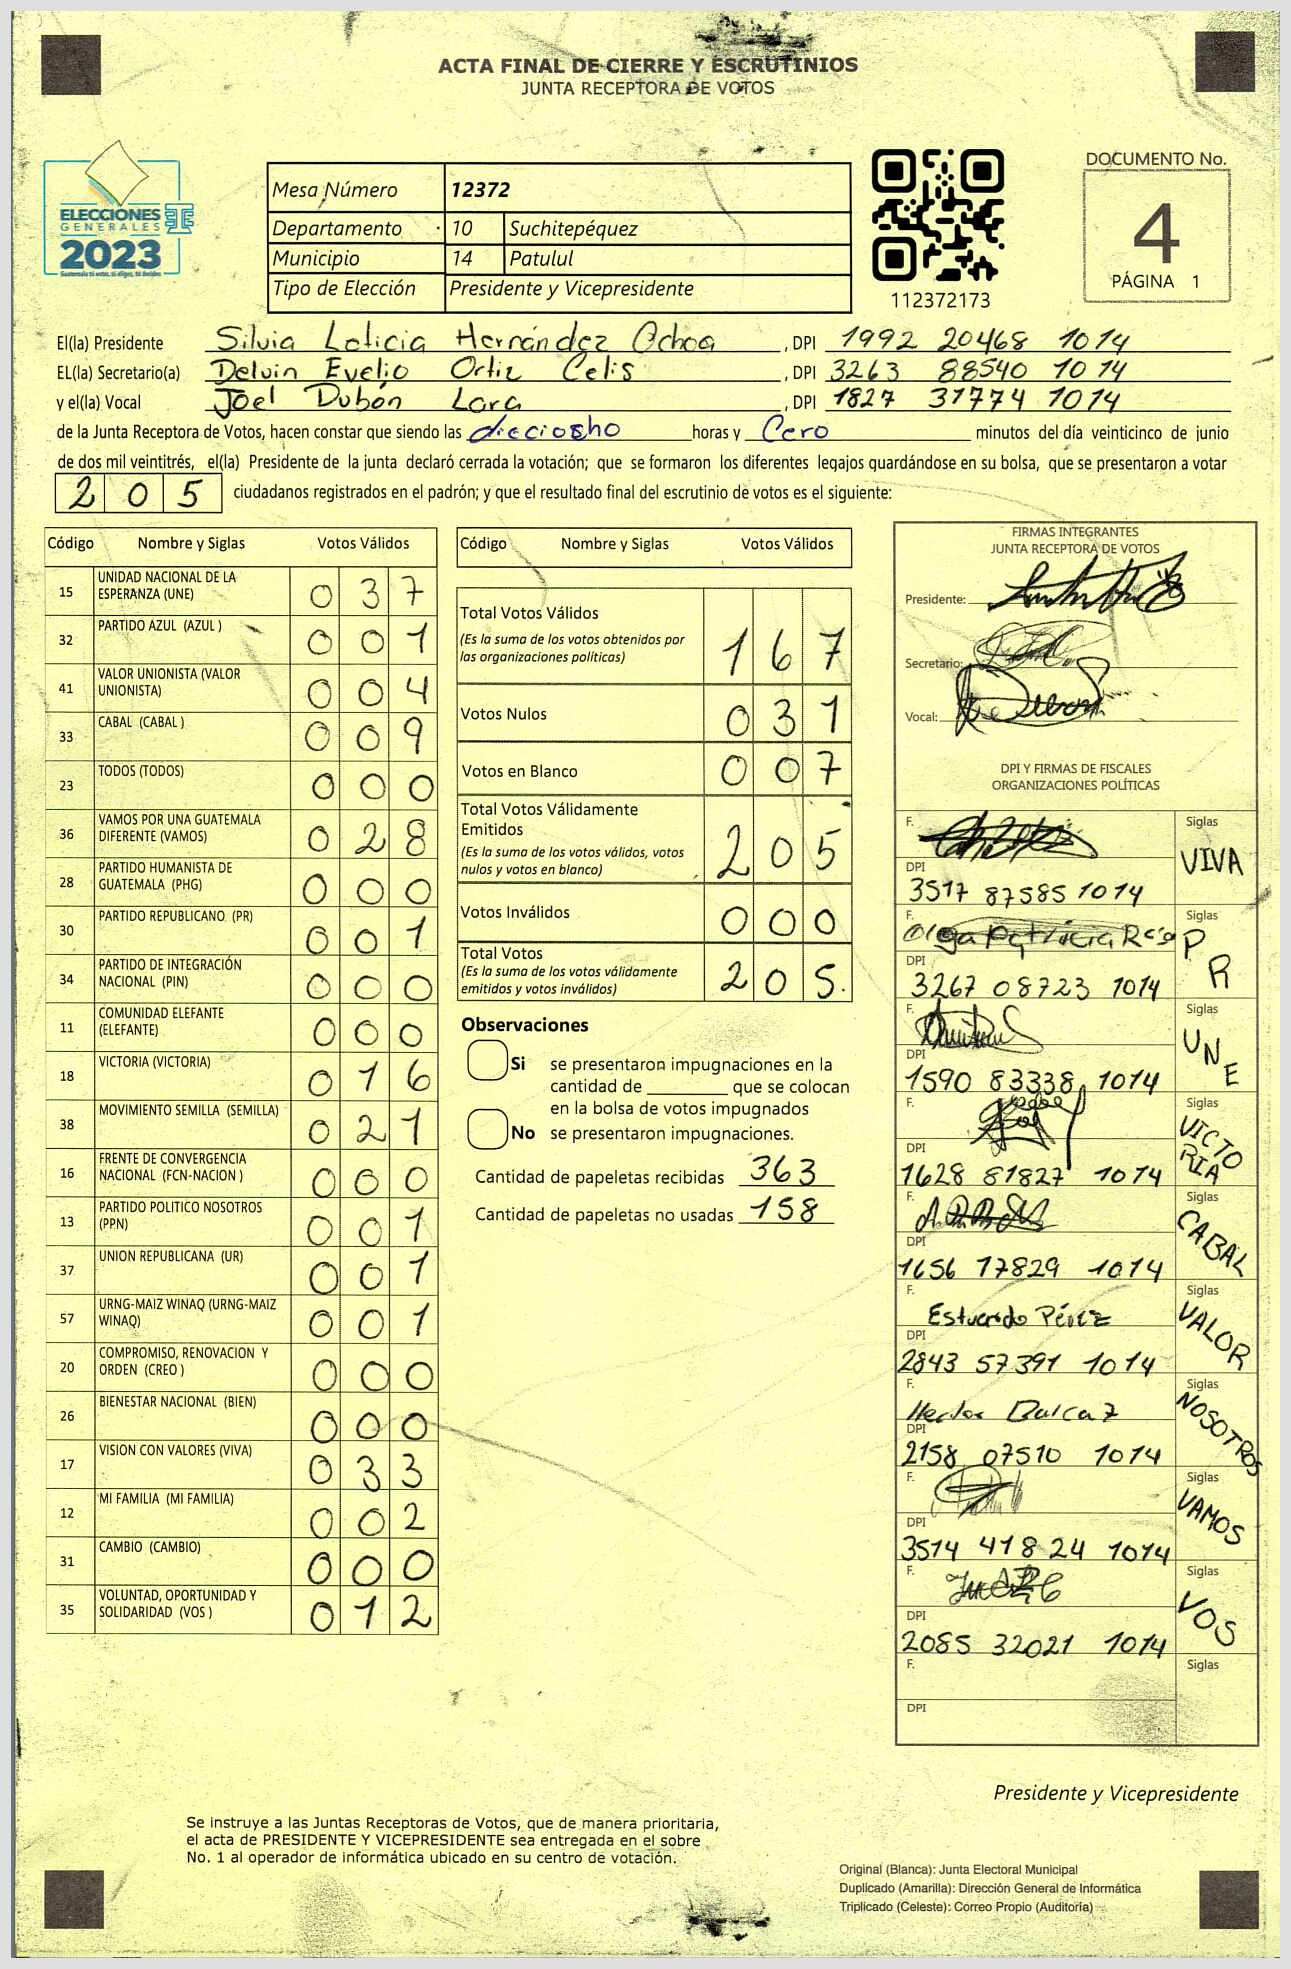 ACTA FINAL DE CIERRE Y ESCRUTINIOS
JUNTA RECEPTORA DE VOTOS
ELECCIONES
GENERALES
2023
Mesa Número 12372
Departamento 10 Suchitepéquez
Municipio 14 Patulul
Tipo de Elección Presidente y Vicepresidente
112372173
DOCUMENTO No.
4
PÁGINA 1
El(la) Presidente Silvia Leticia Hernández Ochoa , DPI 1992 20468 1014
EL(la) Secretario(a) Delvin Evelio Ortiz Celis , DPI 3263 88540 1014
y el(la) Vocal Joel Dubón Lara , DPI 1827 31774 1014
de la Junta Receptora de Votos, hacen constar que siendo las dieciosho horas y Cero minutos del día veinticinco de junio
de dos mil veintitrés, el(la) Presidente de la junta declaró cerrada la votación; que se formaron los diferentes legajos guardándose en su bolsa, que se presentaron a votar
205 ciudadanos registrados en el padrón; y que el resultado final del escrutinio de votos es el siguiente:
Código Nombre y Siglas Votos Válidos
15 UNIDAD NACIONAL DE LA ESPERANZA (UNE) 037
32 PARTIDO AZUL (AZUL ) 001
41 VALOR UNIONISTA (VALOR UNIONISTA) 004
33 CABAL (CABAL ) 009
23 TODOS (TODOS) 000
36 VAMOS POR UNA GUATEMALA DIFERENTE (VAMOS) 028
28 PARTIDO HUMANISTA DE GUATEMALA (PHG) 000
30 PARTIDO REPUBLICANO (PR) 001
34 PARTIDO DE INTEGRACIÓN NACIONAL (PIN) 000
11 COMUNIDAD ELEFANTE (ELEFANTE) 000
18 VICTORIA (VICTORIA) 016
38 MOVIMIENTO SEMILLA (SEMILLA) 021
16 FRENTE DE CONVERGENCIA NACIONAL (FCN-NACION ) 000
13 PARTIDO POLITICO NOSOTROS (PPN) 001
37 UNION REPUBLICANA (UR) 001
57 URNG-MAIZ WINAQ (URNG-MAIZ WINAQ) 001
20 COMPROMISO, RENOVACION Y ORDEN (CREO ) 000
26 BIENESTAR NACIONAL (BIEN) 000
17 VISION CON VALORES (VIVA) 033
12 MI FAMILIA (MI FAMILIA) 002
31 CAMBIO (CAMBIO) 000
35 VOLUNTAD, OPORTUNIDAD Y SOLIDARIDAD (VOS ) 012
Código Nombre y Siglas Votos Válidos
Total Votos Válidos 167
(Es la suma de los votos obtenidos por
las organizaciones políticas)
Votos Nulos 031
Votos en Blanco 007
Total Votos Válidamente
Emitidos 205
(Es la suma de los votos válidos, votos
nulos y votos en blanco)
Votos Inválidos 000
Total Votos 205.
(Es la suma de los votos válidamente
emitidos y votos inválidos)
Observaciones
Si se presentaron impugnaciones en la
cantidad de ________ que se colocan
en la bolsa de votos impugnados
No se presentaron impugnaciones.
Cantidad de papeletas recibidas 363
Cantidad de papeletas no usadas 158
FIRMAS INTEGRANTES
JUNTA RECEPTORA DE VOTOS
Presidente:
Secretario:
Vocal:
DPI Y FIRMAS DE FISCALES
ORGANIZACIONES POLÍTICAS
F. Siglas VIVA
DPI
3517 87585 1014
F. Olga Patricia Siglas PR
DPI
3267 08723 1014
F. Siglas UNE
DPI
1590 83338 1014
F. Siglas VICTORIA
DPI
1628 81827 1014
F. Siglas CABAL
DPI
1656 17829 1014
F. Estuardo Pérez Siglas VALOR
DPI
2843 57391 1014
F. Siglas NOSOTROS
DPI
2158 07510 1014
F. Siglas VAMOS
DPI
3514 41824 1014
F. Siglas VOS
DPI
2085 32021 1014
F. Siglas
DPI
Presidente y Vicepresidente
Se instruye a las Juntas Receptoras de Votos, que de manera prioritaria,
el acta de PRESIDENTE Y VICEPRESIDENTE sea entregada en el sobre
No. 1 al operador de informática ubicado en su centro de votación.
Original (Blanca): Junta Electoral Municipal
Duplicado (Amarilla): Dirección General de Informática
Triplicado (Celeste): Correo Propio (Auditoría)